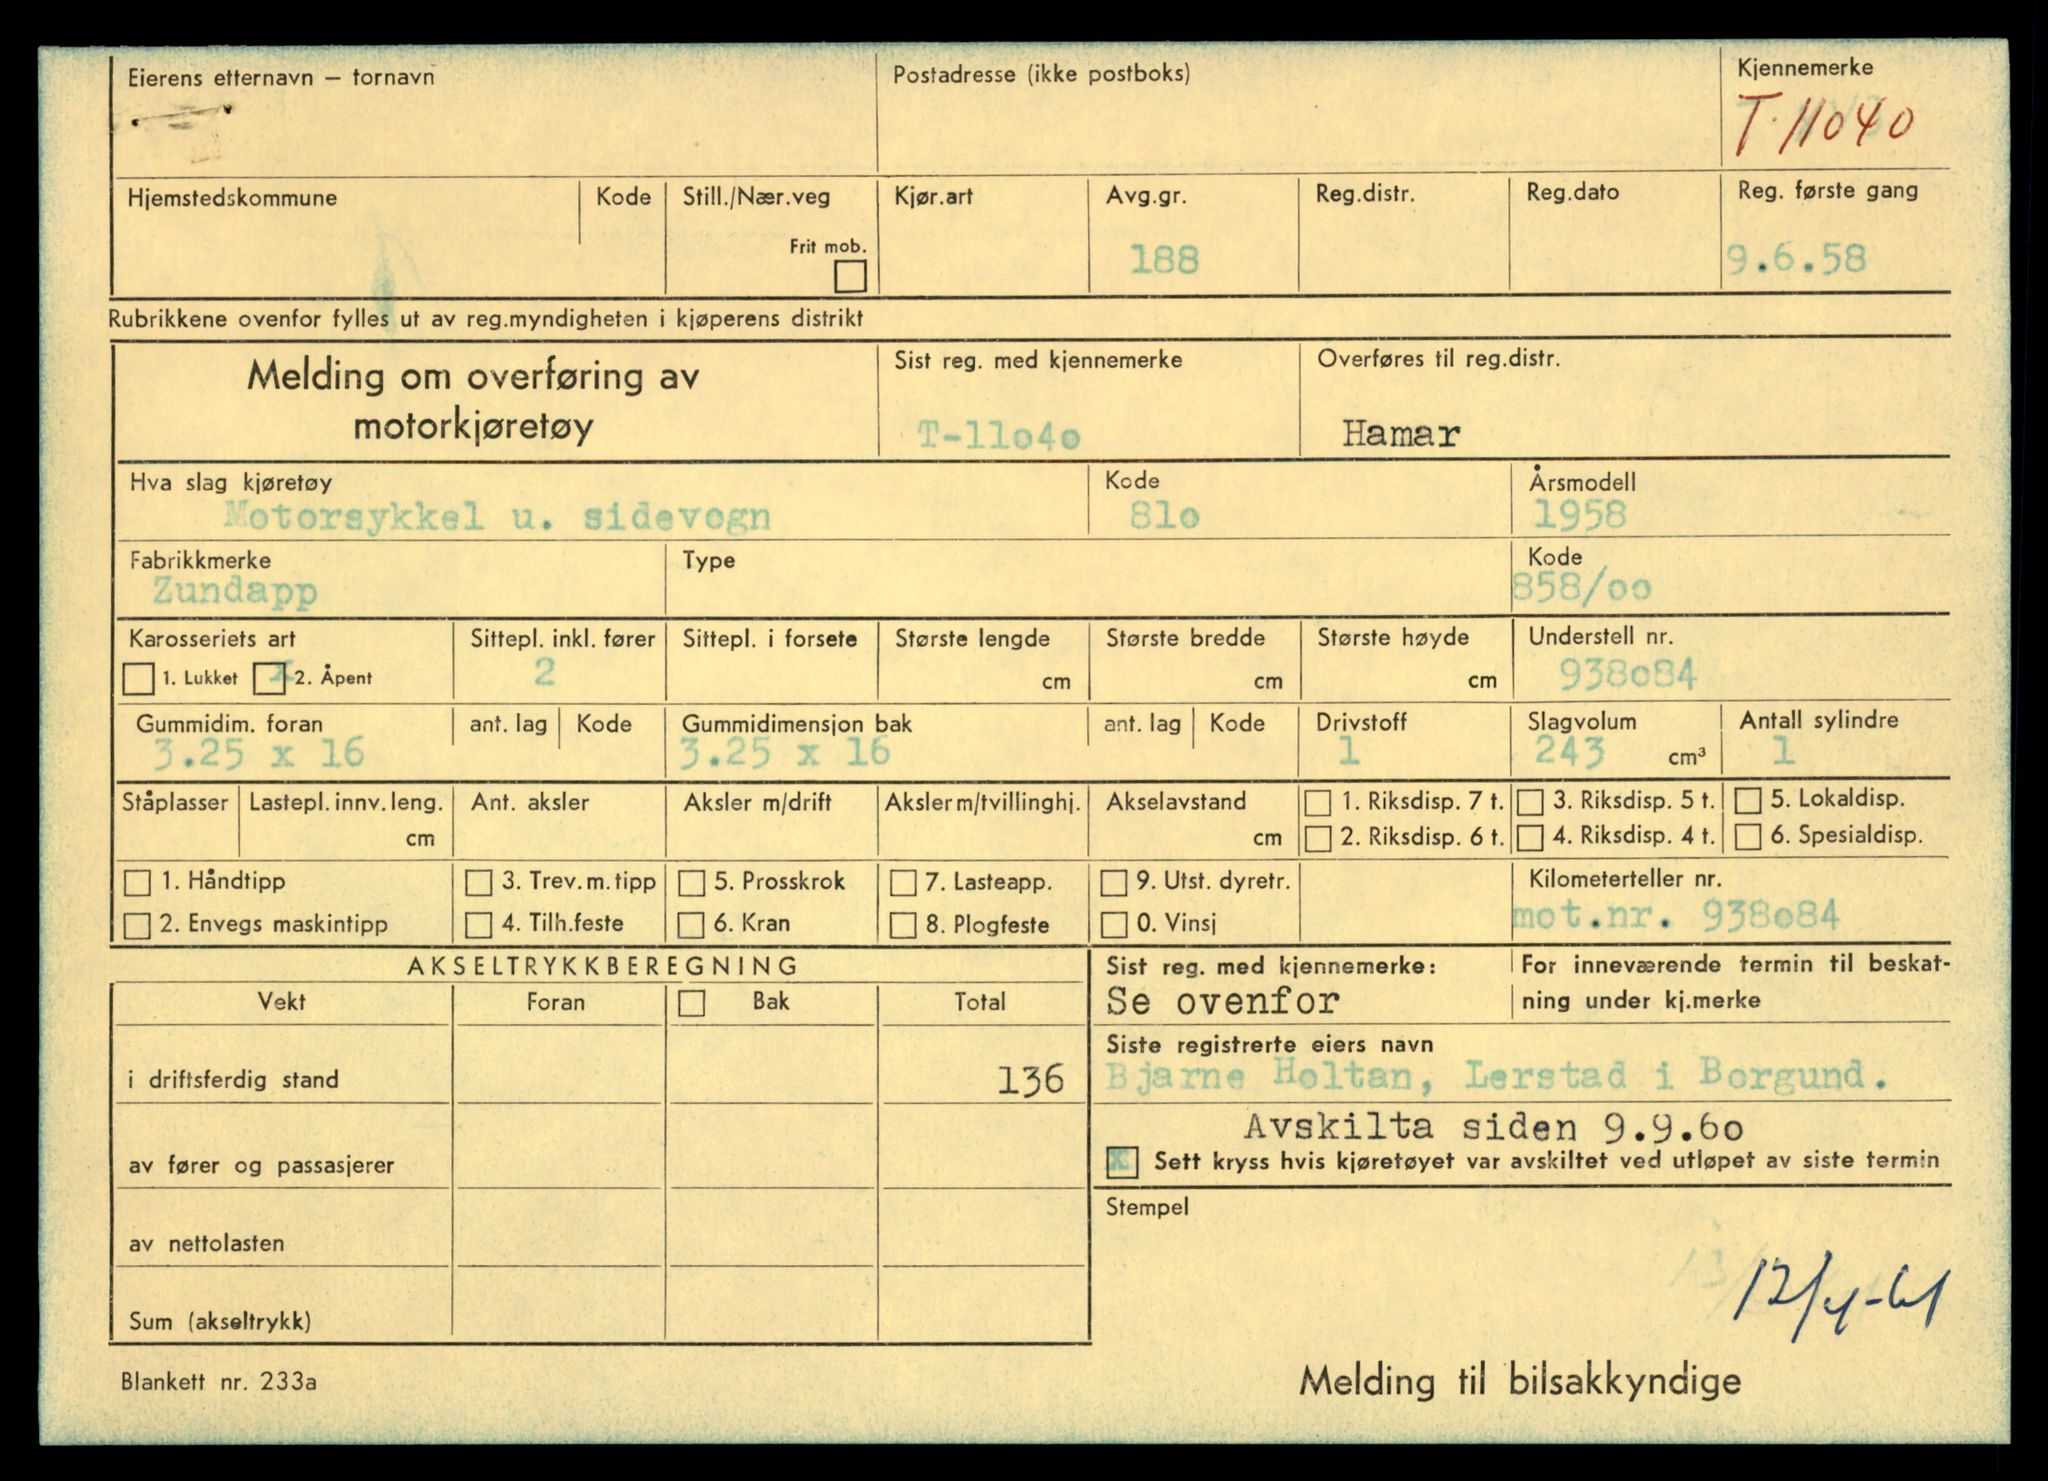 Eierens etternavn – fornavn
Postadresse (ikke postboks)
Kjennemerke
T-11040
Hjemstedskommune
Kode
Still./Nær.veg
Kjør.art
Avg.gr.
Reg.distr.
Reg.dato
Reg. første gang
Frit mob.
188
9.6.58
Rubrikkene ovenfor fylles ut av reg.myndigheten i kjøperens distrikt
Melding om overføring av
motorkjøretøy
Sist reg. med kjennemerke
Overføres til reg.distr.
T-11o4o
Hamar
Hva slag kjøretøy
Kode
Årsmodell
Motorsykkel u. sidevogn
81o
1958
Fabrikkmerke
Type
Kode
Zundapp
858/oo
Karosseriets art
Sittepl. inkl. fører
Sittepl. i forsete
Største lengde
Største bredde
Største høyde
Understell nr.
1. Lukket x 2. Åpent
2
cm
cm
cm
938o84
Gummidim. foran
ant. lag
Kode
Gummidimensjon bak
ant. lag
Kode
Drivstoff
Slagvolum
Antall sylindre
3.25 x 16
3.25 x 16
1
243 cm³
1
Ståplasser
Lastepl. innv. leng.
Ant. aksler
Aksler m/drift
Aksler m/tvillinghj.
Akselavstand
1. Riksdisp. 7 t.
3. Riksdisp. 5 t.
5. Lokaldisp.
cm
cm
2. Riksdisp. 6 t.
4. Riksdisp. 4 t.
6. Spesialdisp.
1. Håndtipp
3. Trev.m.tipp
5. Prosskrok
7. Lasteapp.
9. Utst. dyretr.
Kilometerteller nr.
2. Envegs maskintipp
4. Tilh.feste
6. Kran
8. Plogfeste
0. Vinsj
mot.nr. 938o84
AKSELTRYKKBEREGNING
Sist reg. med kjennemerke:
For inneværende termin til beskat-
ning under kj.merke
Vekt
Foran
Bak
Total
Se ovenfor
Siste registrerte eiers navn
i driftsferdig stand
136
Bjarne Holtan, Lerstad i Borgund.
Avskilta siden 9.9.6o
av fører og passasjerer
x Sett kryss hvis kjøretøyet var avskiltet ved utløpet av siste termin
Stempel
av nettolasten
12/4-61
Sum (akseltrykk)
Blankett nr. 233a
Melding til bilsakkyndige